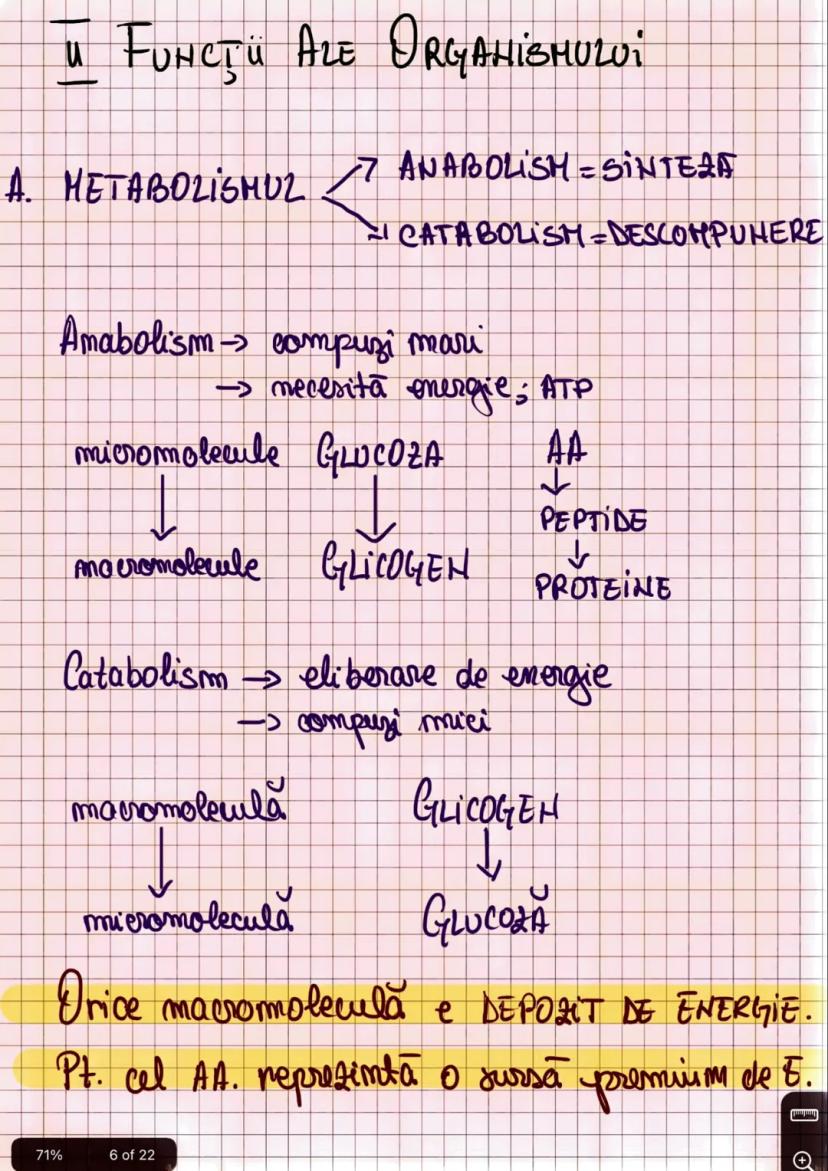 II FUNCȚII ALE ORGANISMULUI
A. METABOLISMUL → ANABOLISM = SINTEZĂ
→ CATABOLISM = DESCOMPUNERE
Anabolism → compuzi mari
→ necesită energie; ATP
micromolecule GLUCOZA AA
↓ ↓ ↓
PEPTIDE
↓
macromolecule GLICOGEN PROTEINE
Catabolism → eliberare de energie
→ compuzi mici
macromoleculă GLICOGEN
↓ ↓
micromoleculă GLUCOZĂ
Orice macromoleculă e DEPOZIT DE ENERGIE.
Pt. cel AA. reprezintă o sursă premium de E.
71% 6 of 22